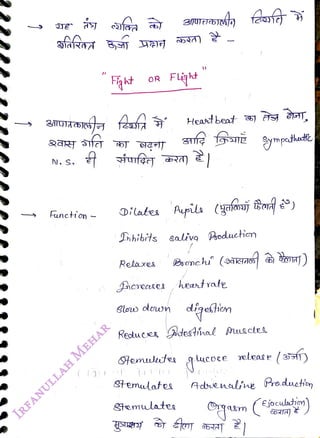 → यह तंत्र व्यक्ति को आपातकालीन स्थिति में
अतिरिक्त ऊर्जा प्रदान करता है –
"Fight OR Flight"
→ आपातकालीन स्थिति में Heartbeat का तेज होना,
श्वास गति का बढ़ना आदि क्रियाएँ Sympathetic
N.S. ही संपादित करता है|
→ Function – Dilates Pupils (पुतलियाँ फैलती है)
Inhibits saliva Production
Relaxes Bronchi (श्वासनली को फैलाना)
Increases heart rate
Slow down digestion
Reduces Intestinal Muscles
Stemulates glucoce release (ऊर्जा)
Stemulates Adrenaline Production
Stemulates Orgasm (Ejoculation) कराना है
मुत्राशय को ढीला करना है|
IRFANULLAH MEHAR